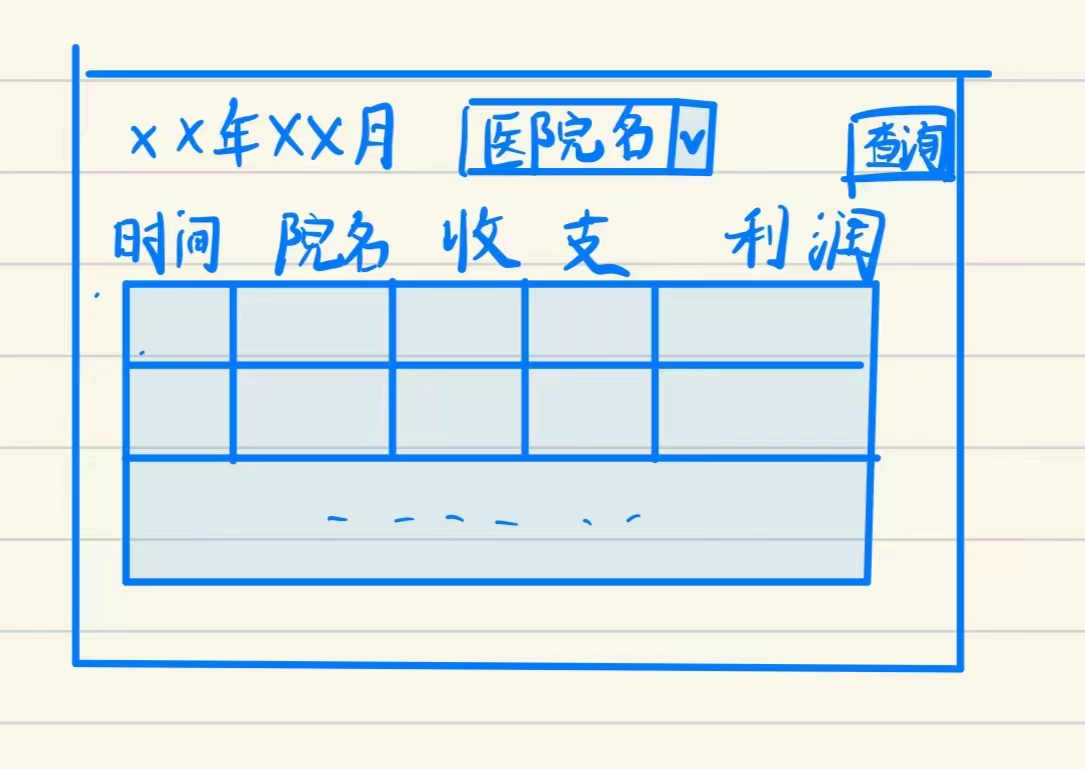 xx年XX月 医院名 查询
时间 院名 收 支 利润